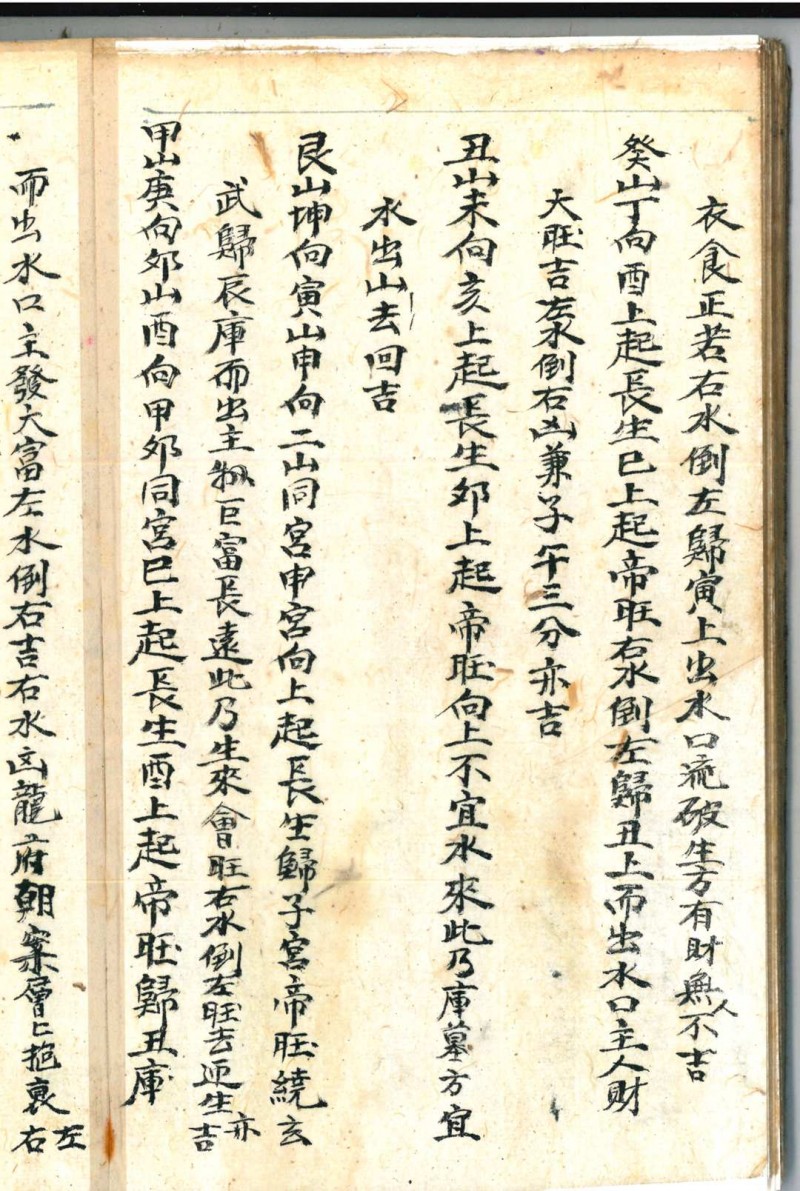 衣食正若右水倒左歸寅上出水口流破生方有財無人不吉
癸山丁向酉上起長生巳上起帝旺右水倒左歸丑上而出水口主人財
大旺吉左水倒右凶兼子午三分亦吉
丑山未向亥上起長生卯上起帝旺向上不宜水來此乃庫墓方宜
水出山去回吉
艮山坤向寅山申向二山同宮申宮向上起長生歸子宮帝旺繞玄
武歸辰庫而出主巨富長遠此乃生來會旺右水倒左旺去迎生亦吉
甲山庚向卯山酉向甲卯同宮巳上起長生酉上起帝旺歸丑庫
而出水口主發大富左水倒右吉右水凶龍府朝案層〻抱裹左右